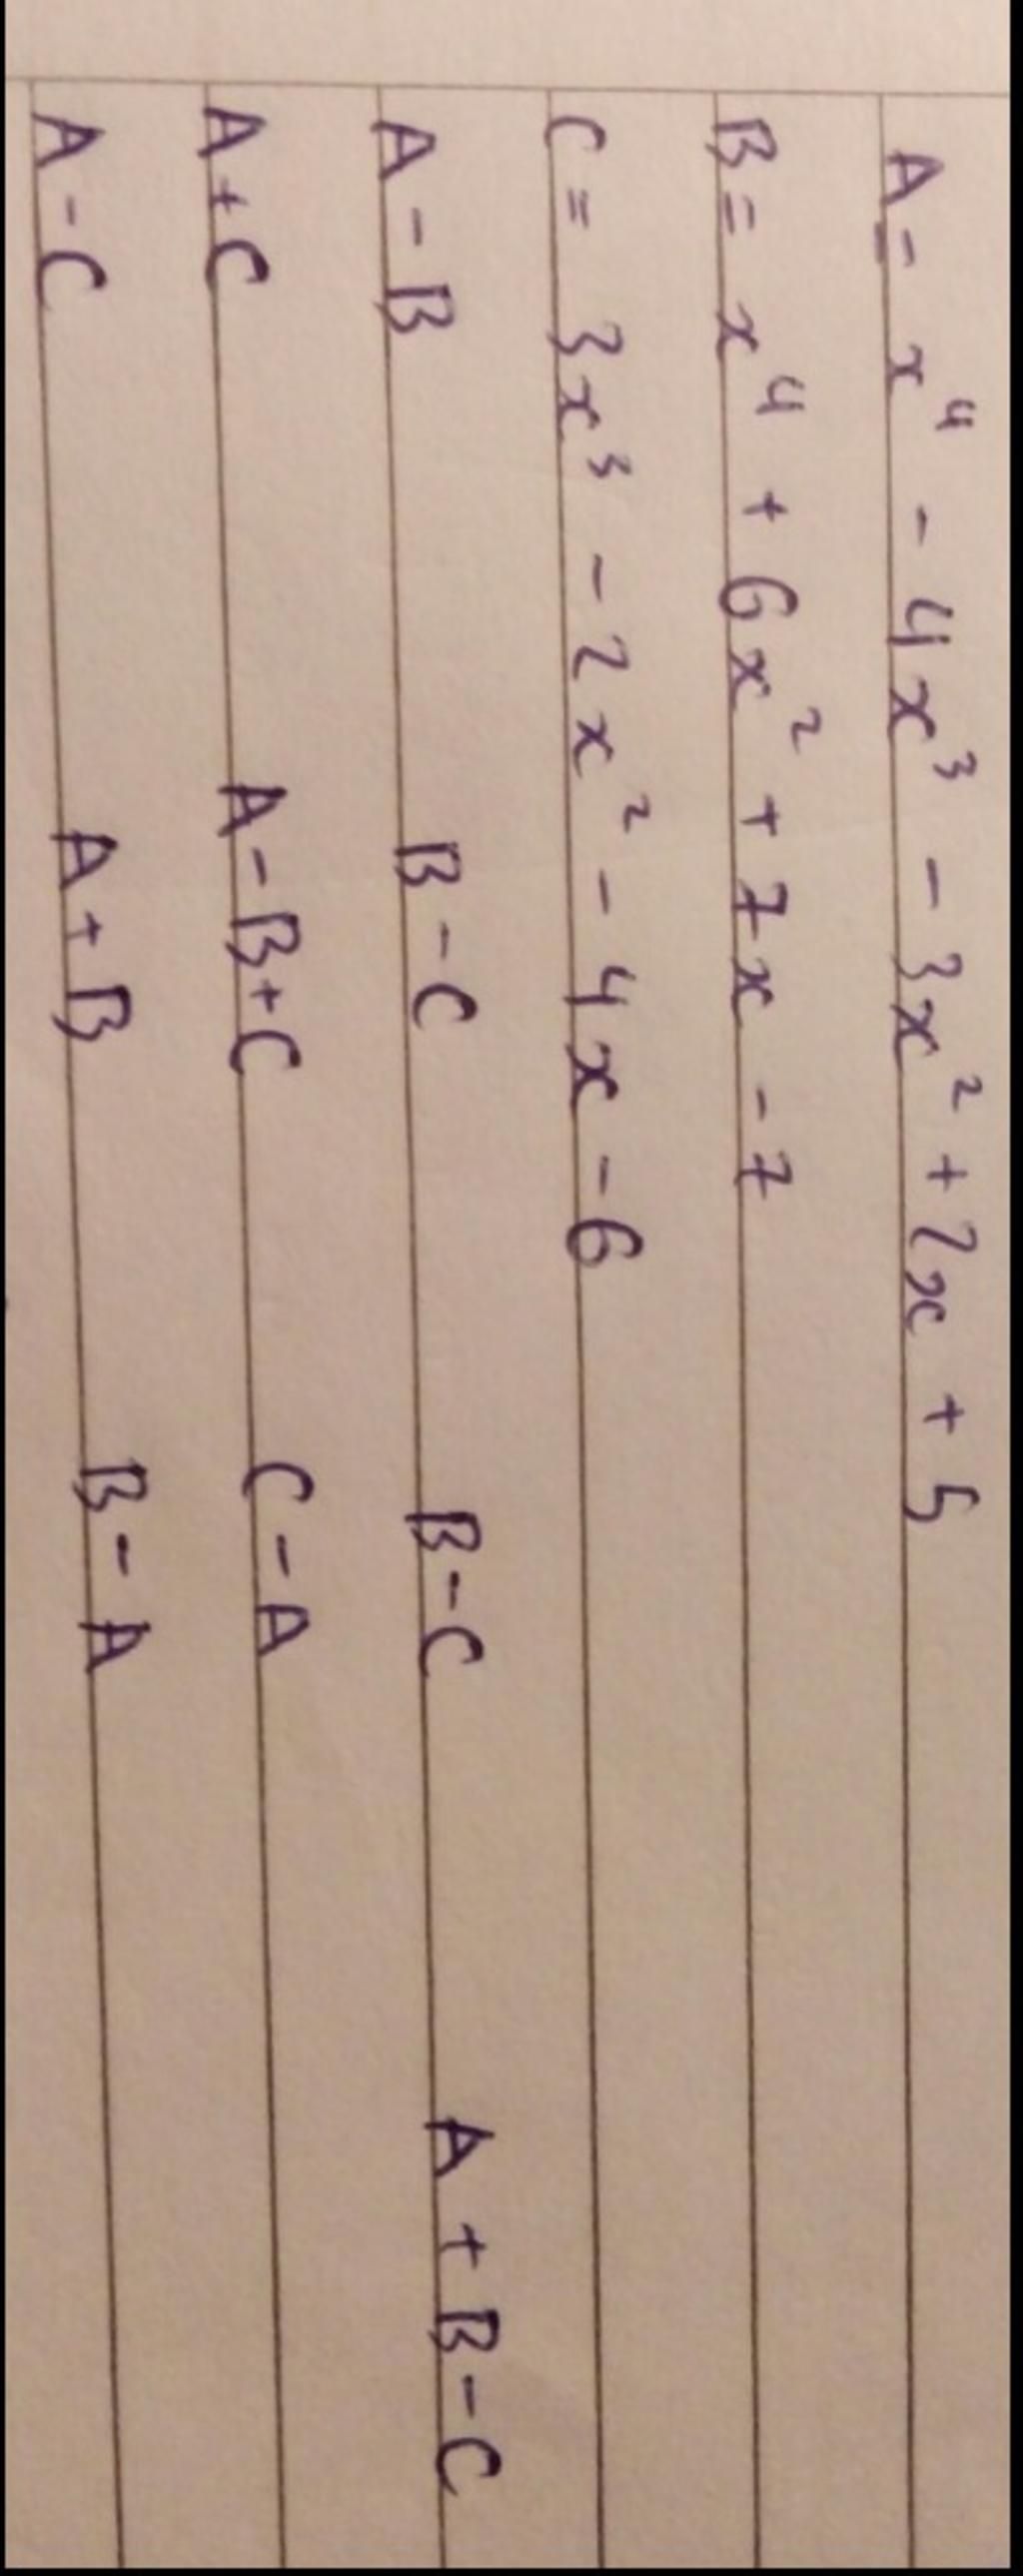 A = x⁴ - 4x³ - 3x² + 2x + 5
B = x⁴ + 6x² + 7x - 7
C = 3x³ - 2x² - 4x - 6
A - B B - C B - C A + B - C
A + C A - B + C C - A
A - C A + B B - A